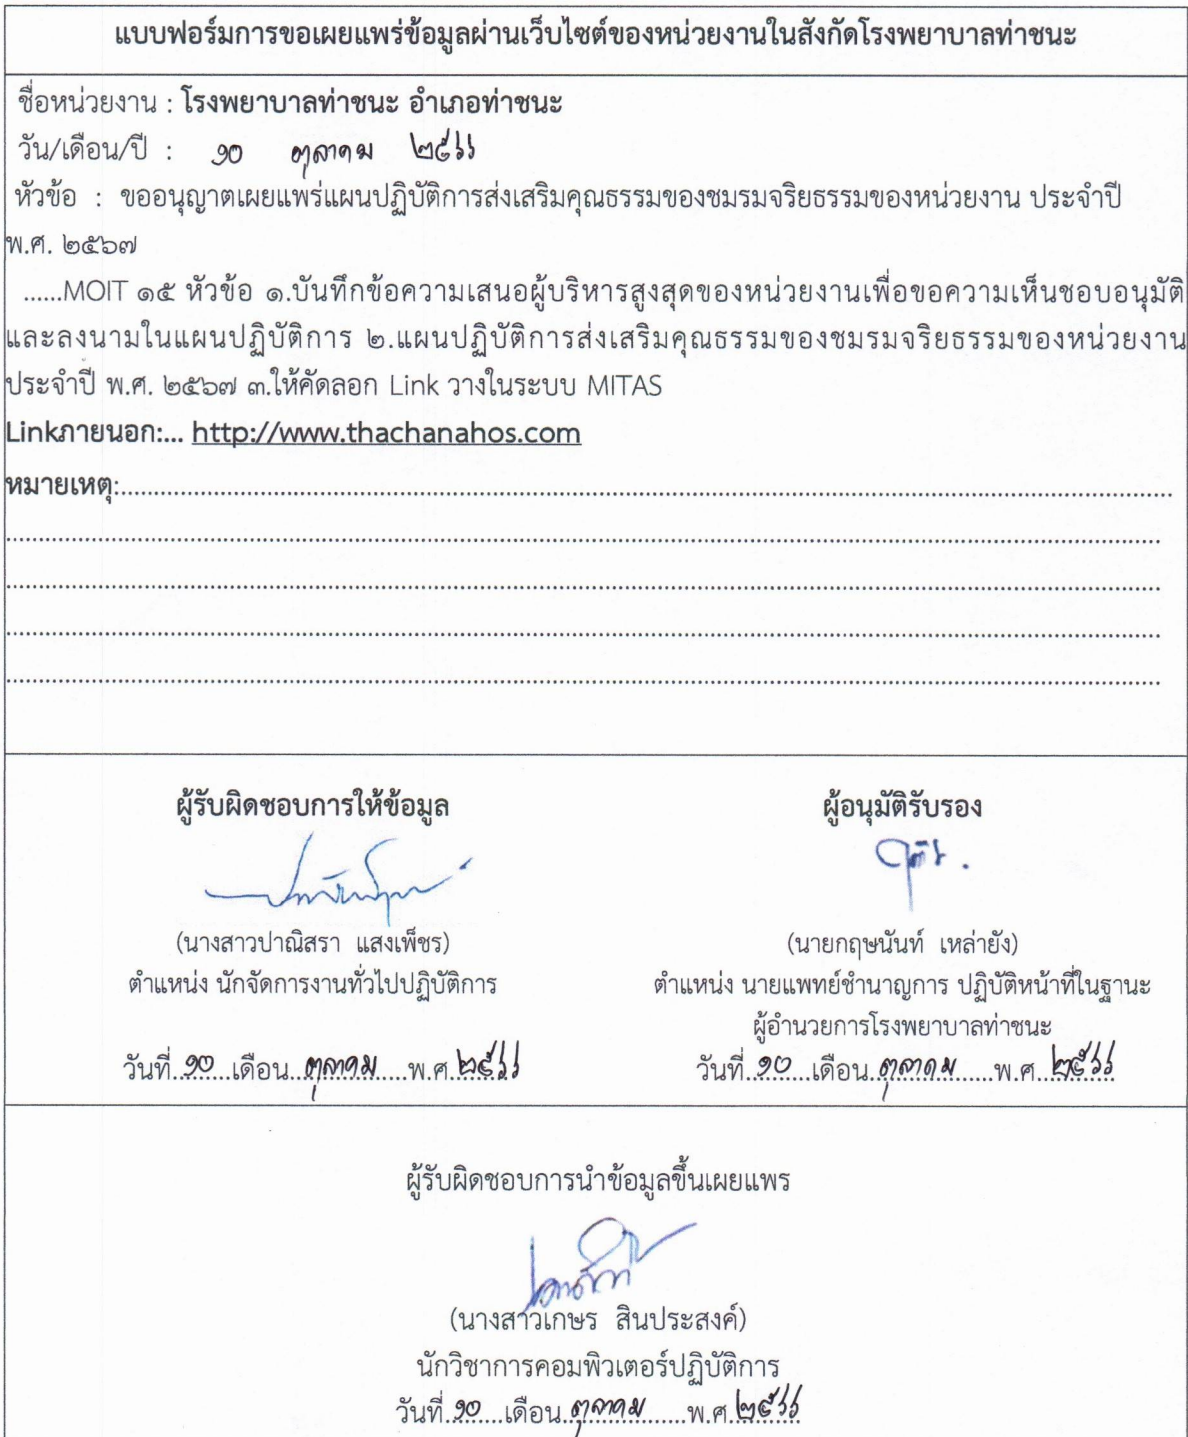 แบบฟอร์มการขอเผยแพร่ข้อมูลผ่านเว็บไซต์ของหน่วยงานในสังกัดโรงพยาบาลท่าชนะ
ชื่อหน่วยงาน : โรงพยาบาลท่าชนะ อำเภอท่าชนะ
วัน/เดือน/ปี : ๑๐ ตุลาคม ๒๕๖๖
หัวข้อ : ขออนุญาตเผยแพร่แผนปฏิบัติการส่งเสริมคุณธรรมของชมรมจริยธรรมของหน่วยงาน ประจำปี
พ.ศ. ๒๕๖๗
......MOIT ๑๕ หัวข้อ ๑.บันทึกข้อความเสนอผู้บริหารสูงสุดของหน่วยงานเพื่อขอความเห็นชอบอนุมัติ
และลงนามในแผนปฏิบัติการ ๒.แผนปฏิบัติการส่งเสริมคุณธรรมของชมรมจริยธรรมของหน่วยงาน
ประจำปี พ.ศ. ๒๕๖๗ ๓.ให้คัดลอก Link วางในระบบ MITAS
Linkภายนอก:... http://www.thachanahos.com
หมายเหตุ:
ผู้รับผิดชอบการให้ข้อมูล
(นางสาวปาณิสรา แสงเพ็ชร)
ตำแหน่ง นักจัดการงานทั่วไปปฏิบัติการ
วันที่..๑๐...เดือน..ตุลาคม.....พ.ศ.๒๕๖๖
ผู้อนุมัติรับรอง
(นายกฤษนันท์ เหล่ายัง)
ตำแหน่ง นายแพทย์ชำนาญการ ปฏิบัติหน้าที่ในฐานะ
ผู้อำนวยการโรงพยาบาลท่าชนะ
วันที่..๑๐....เดือน.ตุลาคม......พ.ศ...๒๕๖๖
ผู้รับผิดชอบการนำข้อมูลขึ้นเผยแพร
(นางสาวเกษร สินประสงค์)
นักวิชาการคอมพิวเตอร์ปฏิบัติการ
วันที่.๑๐....เดือน.ตุลาคม......พ.ศ.๒๕๖๖